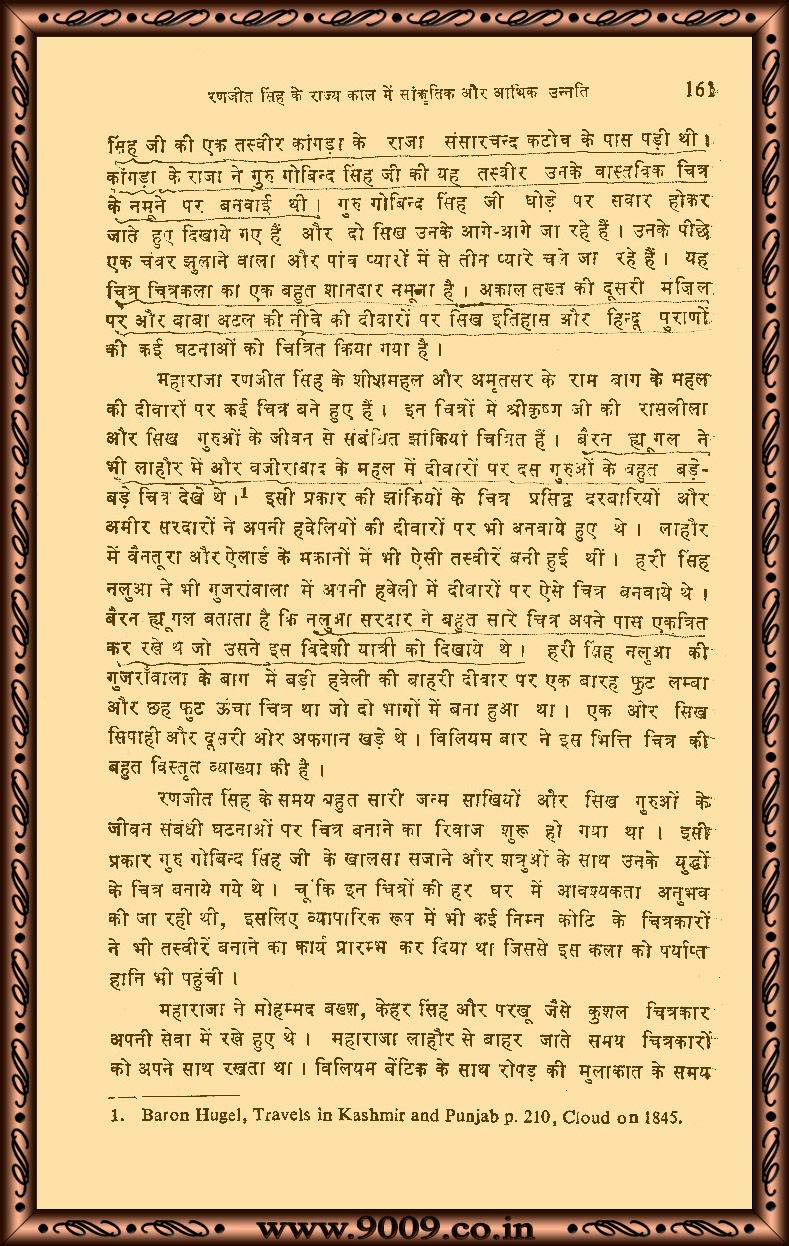 रणजीत सिंह के राज्य काल में सांस्कृतिक और आर्थिक उन्नति 161
सिंह जी की एक तस्वीर कांगड़ा के राजा संसारचन्द कटोच के पास पड़ी थी।
कांगड़ा के राजा ने गुरु गोबिन्द सिंह जी की यह तस्वीर उनके वास्तविक चित्र
के नमूने पर बनवाई थी। गुरु गोबिन्द सिंह जी घोड़े पर सवार होकर
जाते हुए दिखाये गए हैं और दो सिख उनके आगे-आगे जा रहे हैं। उनके पीछे
एक चंवर झुलाने वाला और पांच प्यारों में से तीन प्यारे चले जा रहे हैं। यह
चित्र चित्रकला का एक बहुत शानदार नमूना है। अकाल तख्त की दूसरी मंज़िल
पर और बाबा अटल की नीवे की दीवारों पर सिख इतिहास और हिन्दू पुराणों
की कई घटनाओं को चित्रित किया गया है।
महाराजा रणजीत सिंह के शीशमहल और अमृतसर के राम बाग के महल
की दीवारों पर कई चित्र बने हुए हैं। इन चित्रों में श्रीकृष्ण जी की रासलीला
और सिख गुरुओं के जीवन से संबंधित झांकियां चित्रित हैं। बैरन ह्यूगल ने
भी लाहौर में और वजीराबाद के महल में दीवारों पर दस गुरुओं के बहुत बड़े-
बड़े चित्र देखे थे।¹ इसी प्रकार की झांकियों के चित्र प्रसिद्व दरबारियों और
अमीर सरदारों ने अपनी हवेलियों की दीवारों पर भी बनवाये हुए थे। लाहौर
में वैनतूरा और ऐलार्ड के मकानों में भी ऐसी तस्वीरें बनी हुई थीं। हरी सिंह
नलुआ ने भी गुजरांवाला में अपनी हवेली में दीवारों पर ऐसे चित्र बनवाये थे।
बैरन ह्यूगल बताता है कि नलुआ सरदार ने बहुत सारे चित्र अपने पास एकत्रित
कर रखे थे जो उसने इस विदेशी यात्री को दिखाये थे। हरी सिंह नलुआ की
गुजराँवाला के बाग में बड़ी हवेली की बाहरी दीवार पर एक बारह फुट लम्बा
और छह फुट ऊंचा चित्र था जो दो भागों में बना हुआ था। एक ओर सिख
सिपाही और दूसरी ओर अफगान खड़े थे। विलियम बार ने इस भित्ति चित्र की
बहुत विस्तृत व्याख्या की है।
रणजीत सिंह के समय बहुत सारी जन्म साखियों और सिख गुरुओं के
जीवन संबंधी घटनाओं पर चित्र बनाने का रिवाज शुरू हो गया था। इसी
प्रकार गुरु गोबिन्द सिंह जी के खालसा सजाने और शत्रुओं के साथ उनके युद्धों
के चित्र बनाये गये थे। चूंकि इन चित्रों की हर घर में आवश्यकता अनुभव
की जा रही थी, इसलिए व्यापारिक रूप में भी कई निम्न कोटि के चित्रकारों
ने भी तस्वीरें बनाने का कार्य प्रारम्भ कर दिया था जिससे इस कला को पर्याप्त
हानि भी पहुंची।
महाराजा ने मोहम्मद बख्श, केहर सिंह और परखू जैसे कुशल चित्रकार
अपनी सेवा में रखे हुए थे। महाराजा लाहौर से बाहर जाते समय चित्रकारों
को अपने साथ रखता था। विलियम बेंटिक के साथ रोपड़ की मुलाकात के समय
1. Baron Hugel, Travels in Kashmir and Punjab p. 210, Cloud on 1845.
www.9009.co.in